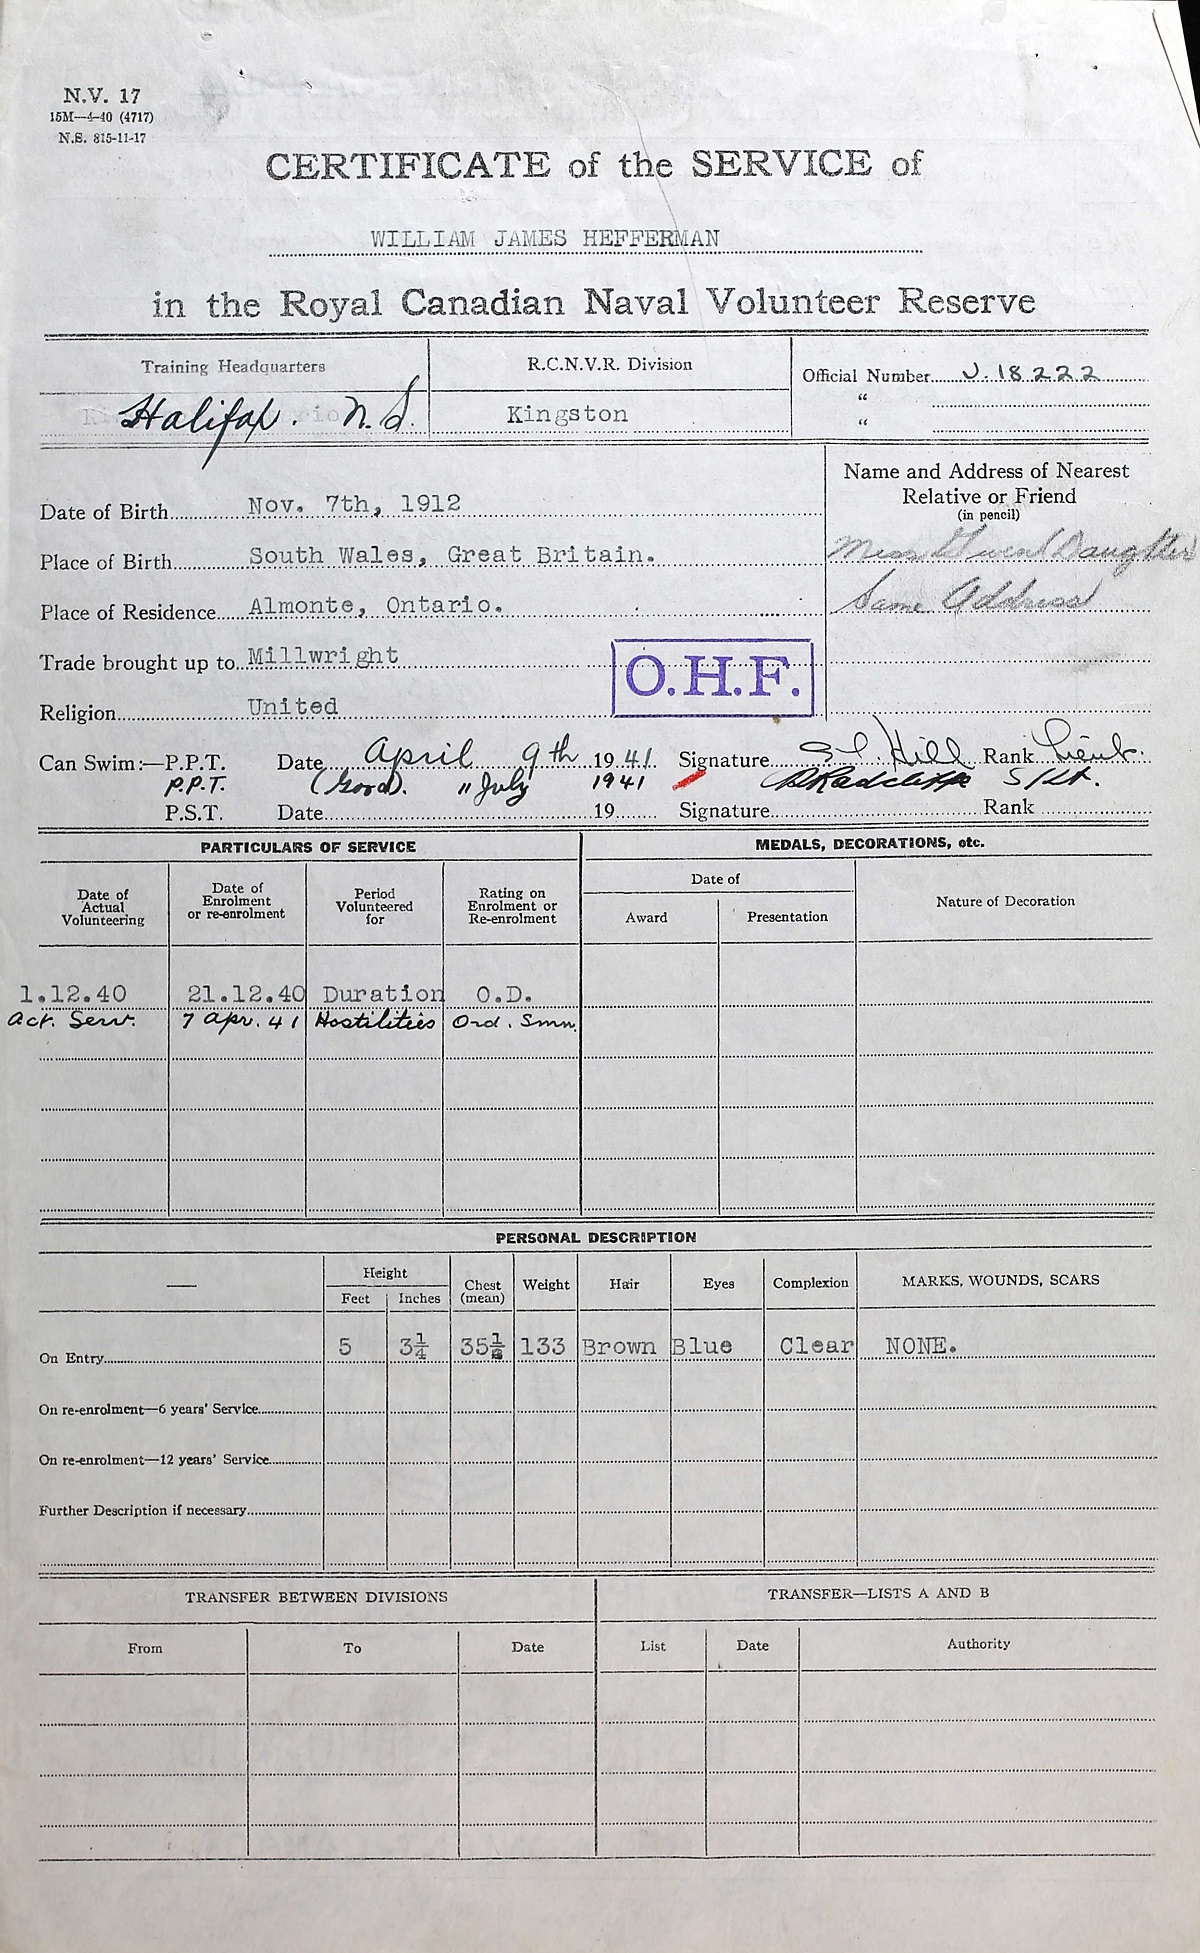 N.V. 17
15M—4-40 (4717)
N.S. 815-11-17
CERTIFICATE of the SERVICE of
WILLIAM JAMES HEFFERMAN
in the Royal Canadian Naval Volunteer Reserve
Training Headquarters R.C.N.V.R. Division Official Number V.18222
Halifax. N.S. Kingston "
"
Name and Address of Nearest
Relative or Friend
(in pencil)
Date of Birth Nov. 7th, 1912
Place of Birth South Wales, Great Britain. Miss Gwen (Daughter
Place of Residence Almonte, Ontario. Same Address
Trade brought up to Millwright
O.H.F.
Religion United
Can Swim:—P.P.T. Date April 9th 1941. Signature Hill Rank Lieut.
P.P.T. (Good). " July 1941 Radcliffe S/Lt.
P.S.T. Date 19 Signature Rank
PARTICULARS OF SERVICE MEDALS, DECORATIONS, etc.
Date of Actual Volunteering Date of Enrolment or re-enrolment Period Volunteered for Rating on Enrolment or Re-enrolment Date of Nature of Decoration
Award Presentation
1.12.40 21.12.40 Duration O.D.
Act. Serv. 7 Apr. 41 Hostilities Ord. Smn.
PERSONAL DESCRIPTION
— Height Chest (mean) Weight Hair Eyes Complexion MARKS, WOUNDS, SCARS
Feet Inches
On Entry 5 3¼ 35½ 133 Brown Blue Clear NONE.
On re-enrolment—6 years' Service
On re-enrolment—12 years' Service
Further Description if necessary
TRANSFER BETWEEN DIVISIONS TRANSFER—LISTS A AND B
From To Date List Date Authority